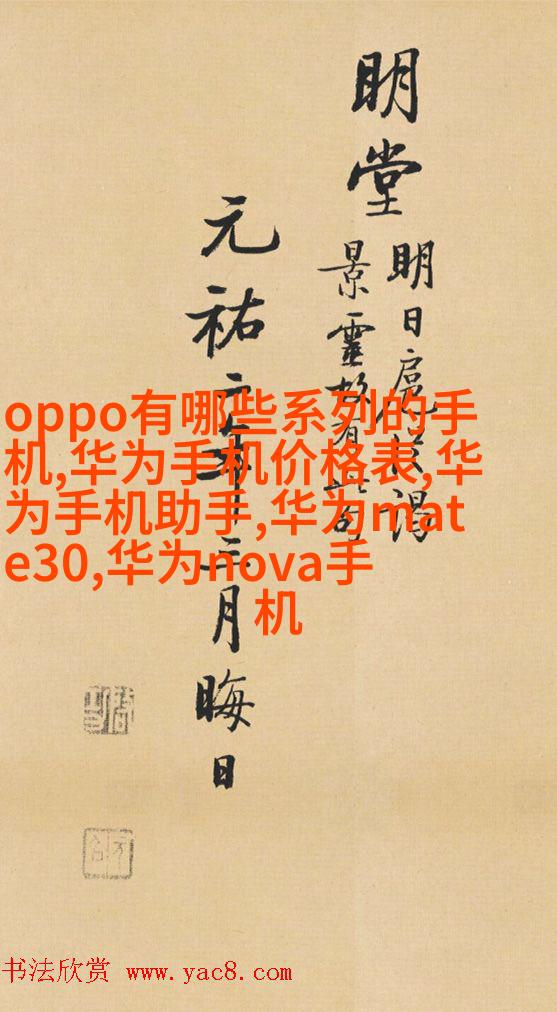 明堂
明日扈從謁
景靈故有此句
元祐年三月晦日
oppo有哪些系列的手
机,华为手机价格表,华
为手机助手,华为mat
e30,华为nova手
机
书法欣赏 www.yac8.com